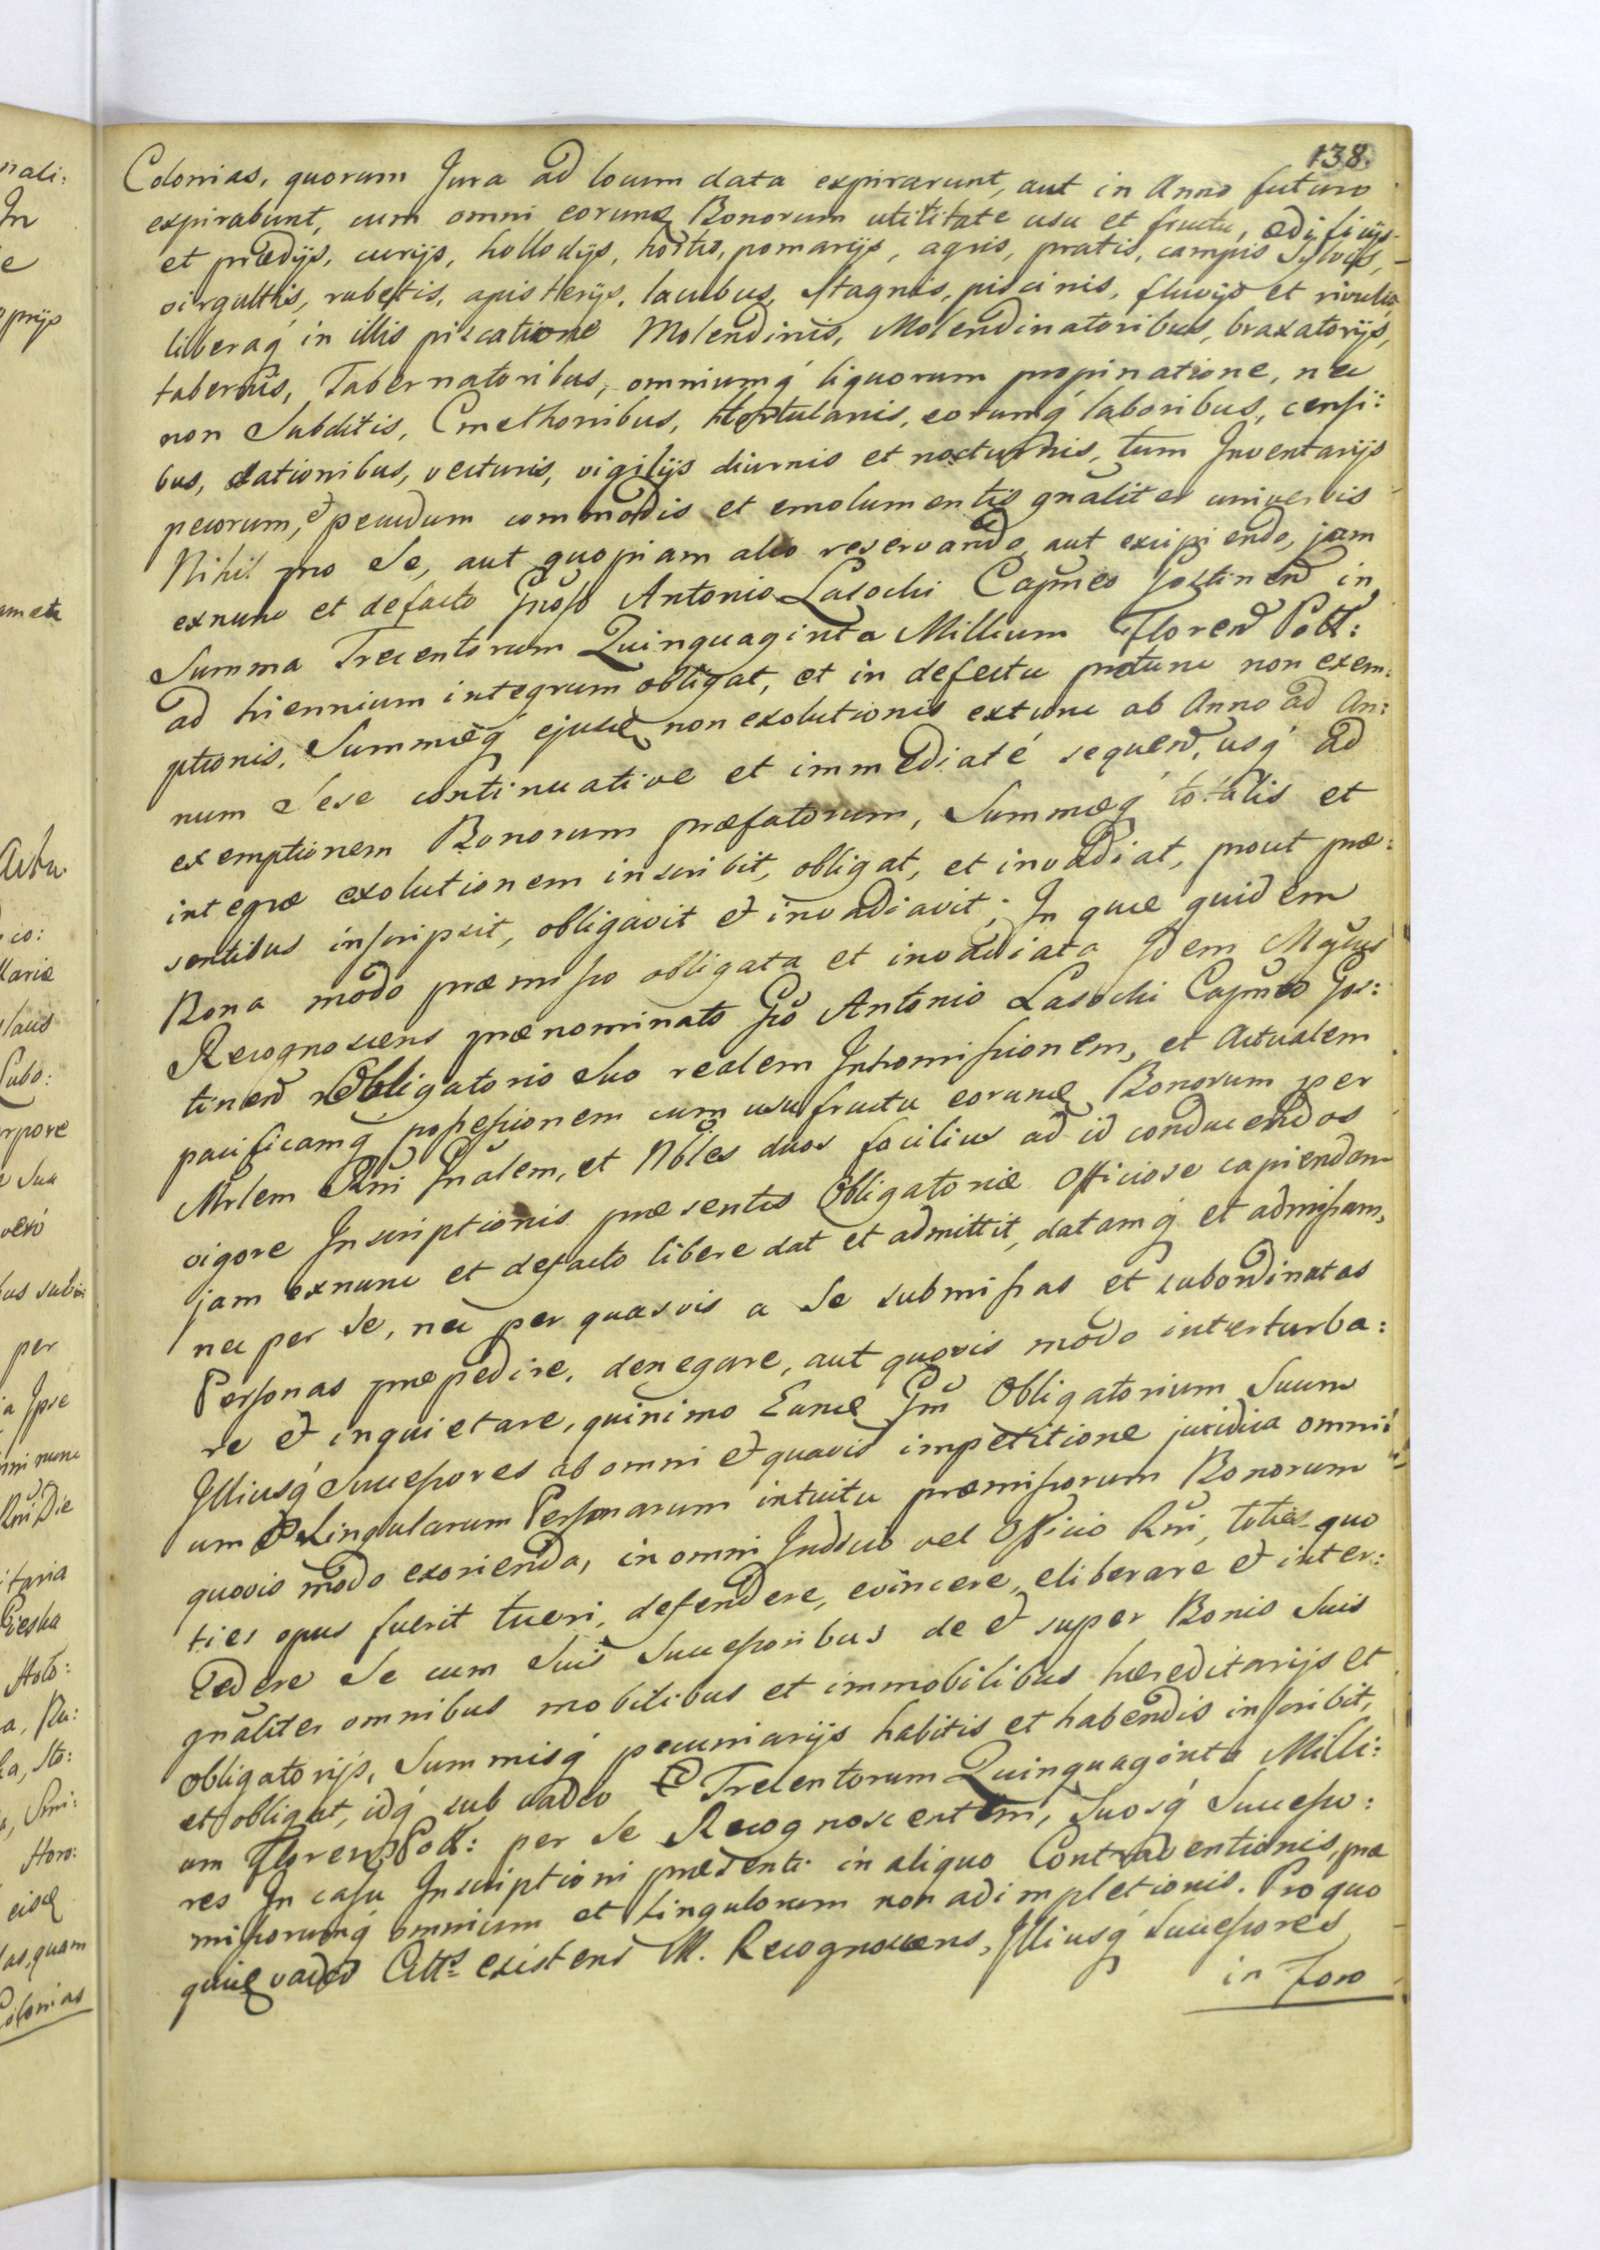 138.
Colonias, quorum Jura ad locum data expirarunt, aut in Anno futuro
expirabunt, cum omni eorund Bonorum utilitate usu et fructu, ædificijs
et prædijs, curijs, hollodijs, hortis, pomarijs, agris, pratis, campis Sylvis,
virgultis, rubetis, apisterijs, lacubus, Stagnis, piscinis, fluvijs et rivulis,
liberaq́ in illis piscatione Molendinis, Molendinatoribus, braxatorijs,
tabernis, Tabernatoribus, omniumq́ liquorum propinatione, nec
non Subditis, Cmethonibus, Hortulanis, eorumq́ laboribus, censi:
bus, dationibus, vecturis, vigilijs diurnis et nocturnis, tum Inventarijs
pecorum, et pecudum commodis et emolumentis gnãliter universis
Nihil pro Se, aut quopiam alio reservando aut excipiendo, jam
exnunc et defacto Gñoso Antonio Lasocki Capñeo Gostinen in
Summa Trecentorum Quinquaginta Millium Floren Poll:
ad triennium integrum obligat, et in defectu protunc non exem:
ptionis, Summæq́ ejusd non exolutionis extunc ab Anno ad An:
num Sese continuative et immediaté sequen, usq́ ad
exemptionem Bonorum præfatorum, Summæq́ totalis et
integræ exolutionem inscribit, obligat, et invadiat, prout præ:
sentibus inscripsit, obligavit et invadiavit; In quæ quidem
Bona modo præmisso obligata et invadiata Idem Mgñus
Recognoscens prænominato Gño Antonio Lasocki Capñeo Gos:
tinen Obligatorio Suo realem Intromissionem, et Actualem
pacificamq́ possessionem cum usufructu eorund Bonorum per
Mrlem Rñi Gñalem, et Nbles duos facilius ad id conducendos
vigore Inscriptionis præsentis Obligatoriæ Officiose capiendam
jam exnunc et defacto libere dat et admittit, datamq́ et admissam,
nec per Se, nec per quasvis a Se submissas et subordinatas
Personas præpedire, denegare, aut quovis modo interturba:
re et inquietare, quinimo Eund Gñm Obligatorium Suum
Illiusq́ Successores ab omni et quavis impetitione juridica omni:
um et Singularum Personarum intuitu præmissorum Bonorum
quovis modo exorienda, in omni Judicio vel Officio Rñi, toties quo
ties opus fuerit tueri, defendere, evincere, eliberare et inter:
cedere Se cum Suis Successoribus de et super Bonis Suis
gnãliter omnibus mobilibus et immobilibus hæreditarijs et
obligatorijs, Summisq́ pecuniarijs habitis et habendis inscribit,
et obligat, idq́ sub vadio Trecentorum Quinquaginta Milli:
um Floren Poll: per Se Recognoscentem, Suosq́ Successo:
res In casu Inscriptioni præsenti in aliquo Contraventionis, præ
missorumq́ omnium et singulorum non adimpletionis. Pro quo
quid vadio Citts existens M. Recognoscens, Illiusq́ Successores
in Foro